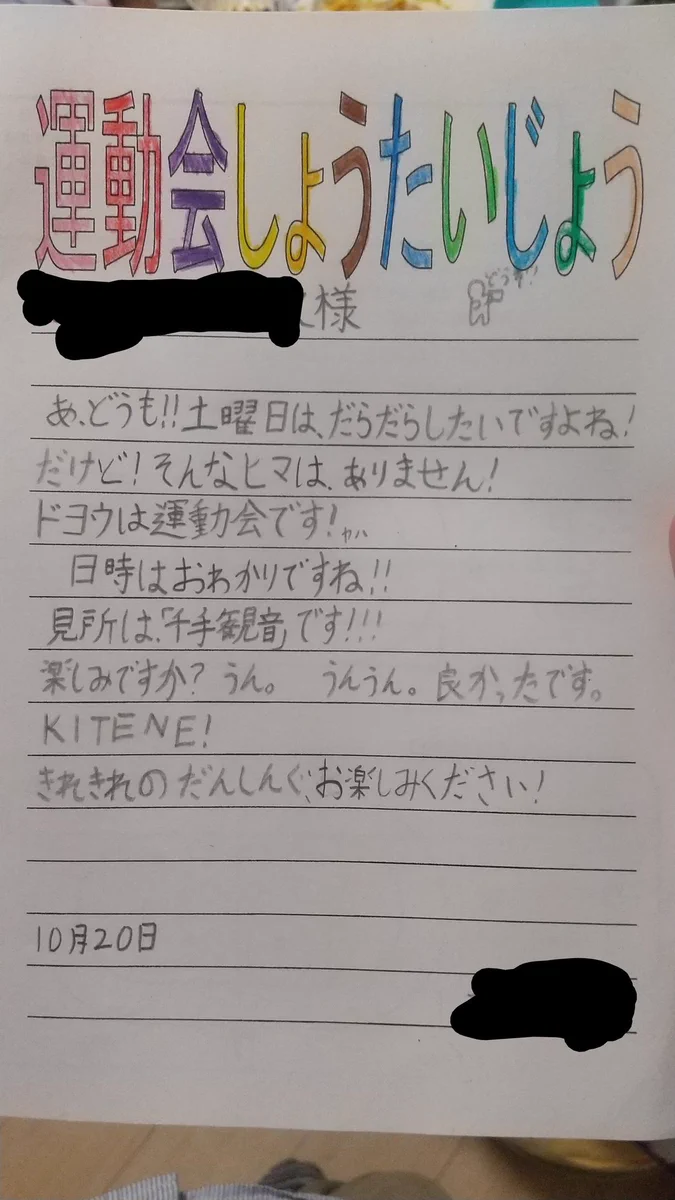 運動会しょうたいじょう
様
どうぞ!
あ、どうも!!土曜日は、だらだらしたいですよね!
だけど!そんなヒマは、ありません!
ドヨウは運動会です!
日時はおわかりですね!!
見所は、「千手観音」です!!!
楽しみですか?うん。 うんうん。良かったです。
KITENE!
きれきれのだんしんぐ、お楽しみください!
10月20日